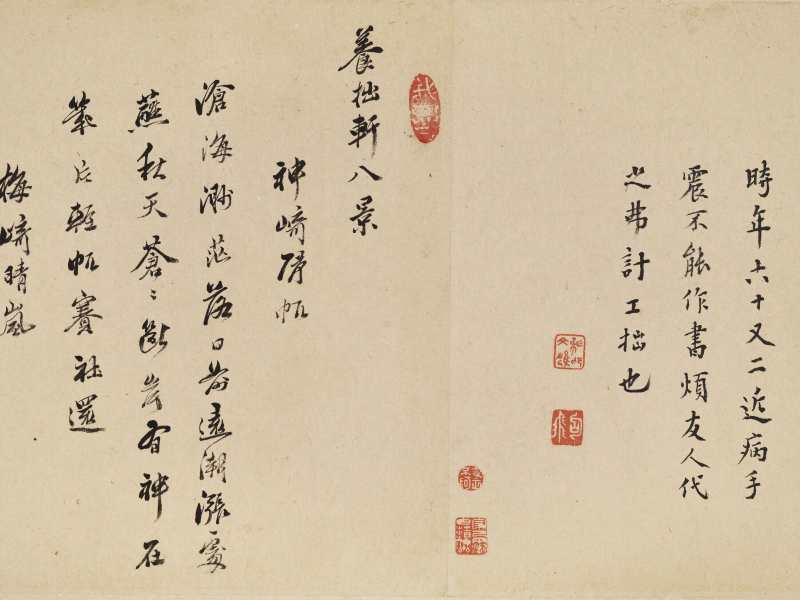 時年六十又二近病手
震不能作書煩友人代
之弗計工拙也
養拙軒八景
神崎歸帆
滄海渺茫落日前遠潮漲處
蘸秋天蒼〻斷岸有神在
幾片輕帆賽社還
梅崎晴嵐